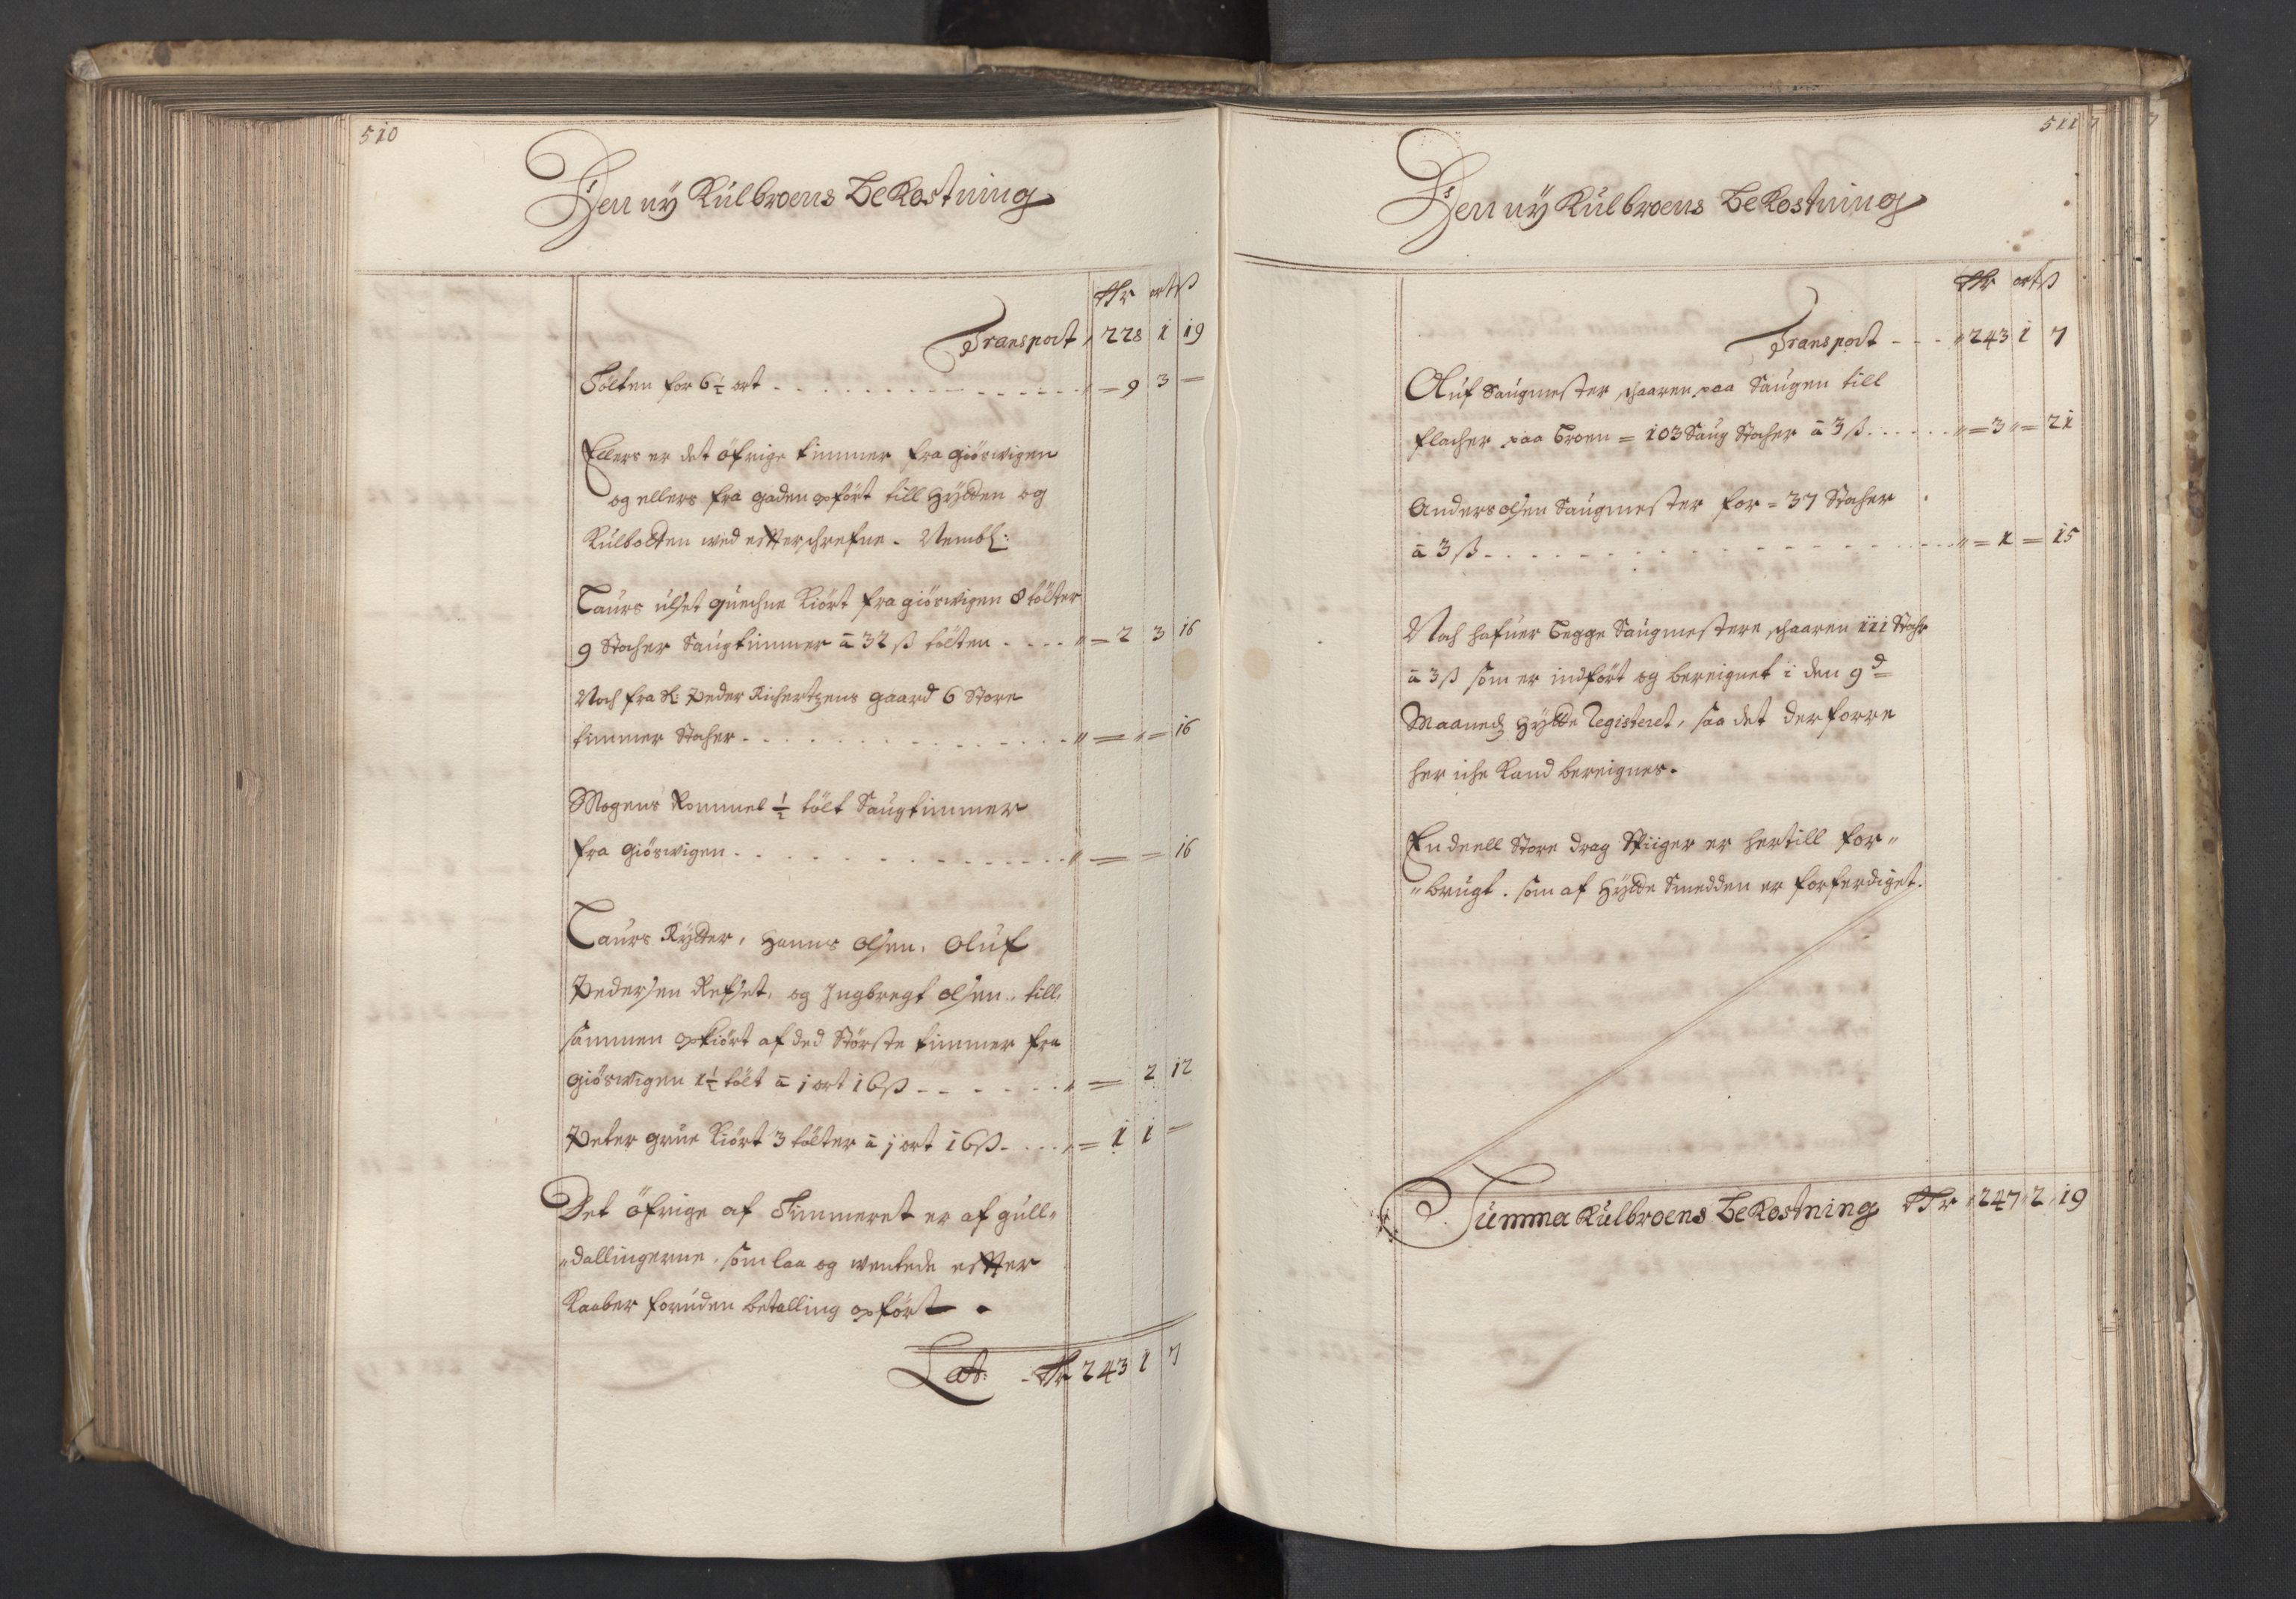 510
Den nÿ Kulbroens Bekostning
Rdr ort ß
Transport 228 1 19
Tölten for 6½ ort - - - 9 3 -
Ellers er det öfrige timmer fra Giösvigen
og ellers fra gaden opfört till Hÿtten og
Kulbolten wed effterschrefne. Nembl:
Laurs Ulset quechne Kiört fra giösvigen 8 tölter
9 Stocher Saugtimmer â 32 ß tölten - - - 2 3 16
Noch fra Sl: Peder Richertzens gaard 6 Store
timmer Stocher - - - " = " = 16
Mogens Rommel ½ tölt Saugtimmer
fra Giösvigen - - - " = = 16
Laurs Rÿtter, Hanns Olsen, Oluf
Pedersen Refset, og Ingbregt Olsen, till
sammen opkiört af ded Störste timmer fra
Giösvigen 1½ tölt â 1 ort 16 ß - - - 2 12
Peter grüe Kiört 3 tölter â 1 ort 16 ß - - - 1 1 -
Det öfrige af Timmeret er af gull-
"dallingerne, som laa og wentede effter
Kaaber foruden betalling opfört.
Lat: Rdr 243 1 7
511
Den nÿ Kulbroens Bekostning
Rdr ort ß
Transport - - - " 243 1 7
Oluf Saugmester schaaren paa Saugen till
flacher paa Broen = 103 Saug Stocher â 3 ß - - - " = 3 " = 21
Anders Olsen Saugmester for = 37 Stocher
â 3 ß - - - " = 1 = 15
Noch hafuer begge Saugmestere schaaren 111 Stochr
â 3 ß som er indfört og bereignet i den 9d
Maaneds Hÿtte Registeret, saa det derforre
her iche Kand bereignes.
En deell Store drag Spiiger er hertill for"
"brugt. som af Hÿtte Smedden er forferdiget.
Summa Kulbroens Bekostning Rdr 247 2 19